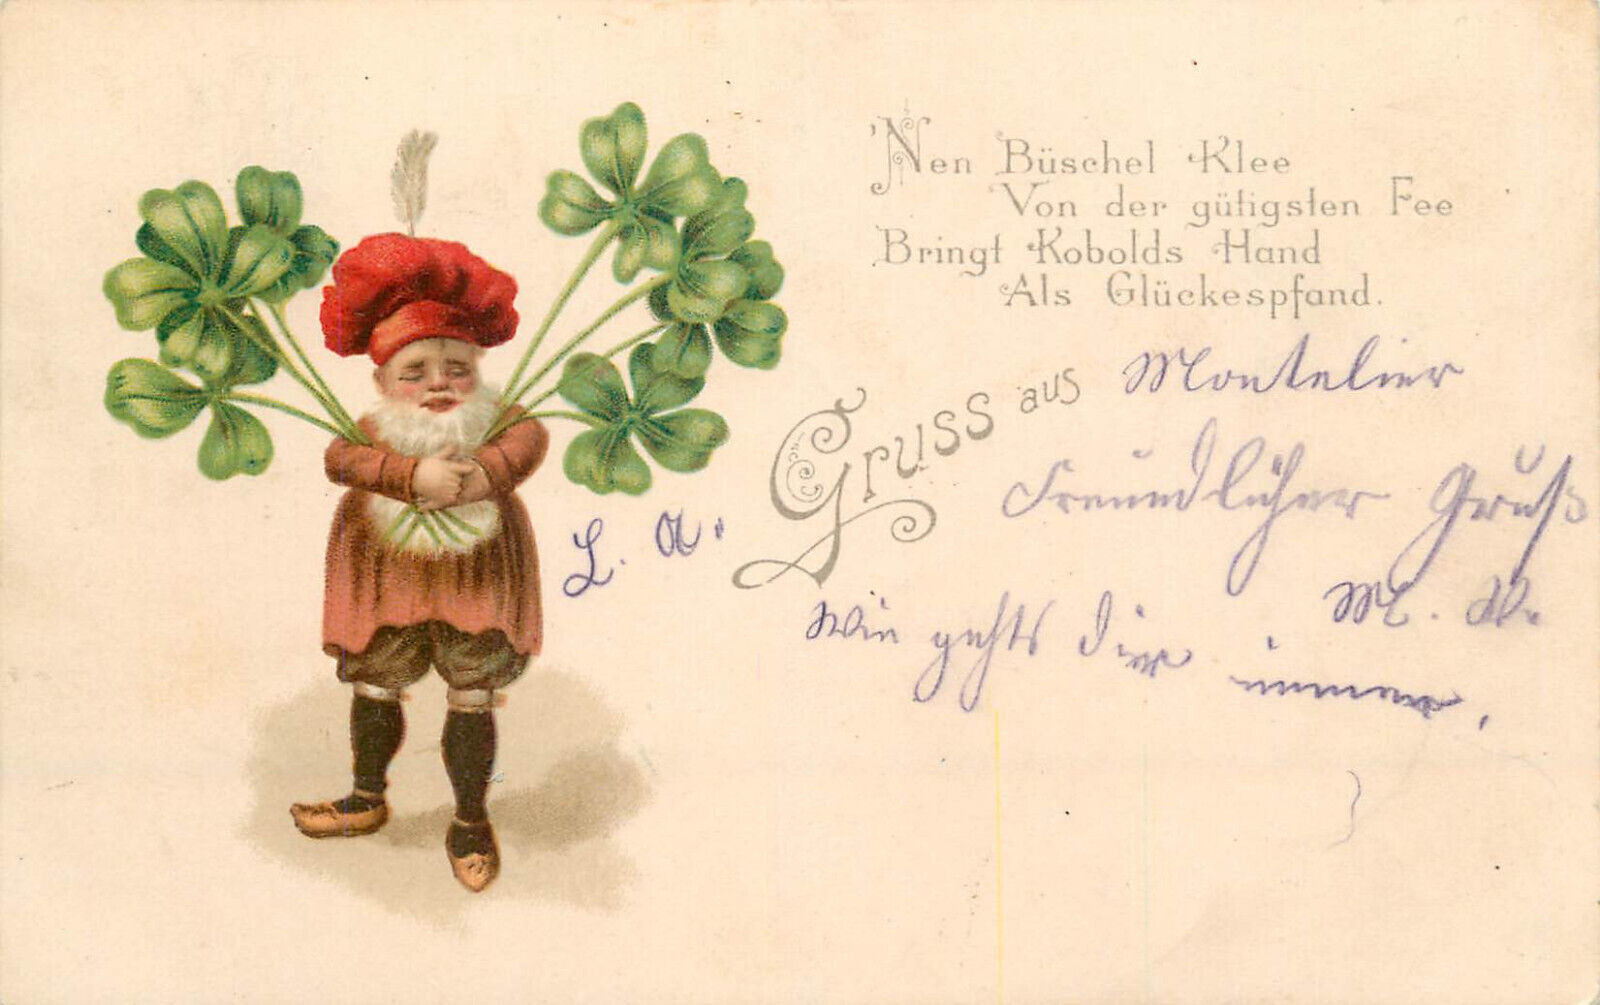 'Nen Büschel Klee
Von der gütigsten Fee
Bringt Kobolds Hand
Als Glückespfand.
Gruss aus Montelier
Freundlicher Gruß
L. A.
M. W.
Wie gehts dier immer,